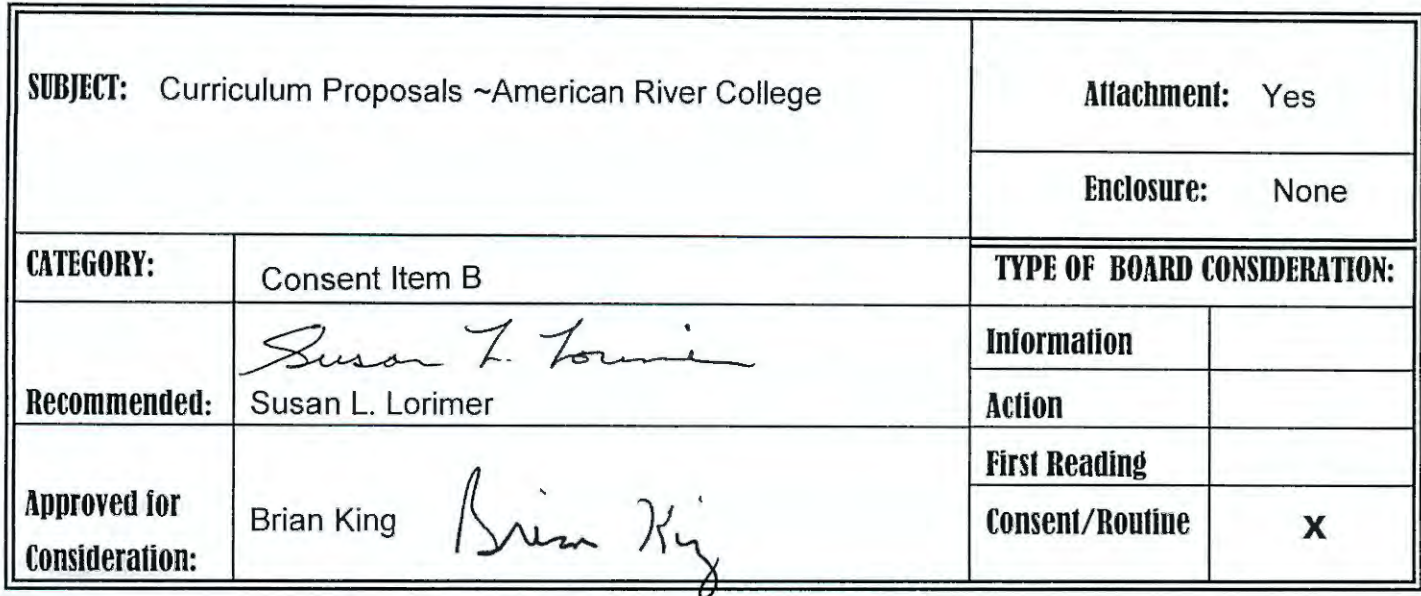 SUBJECT: Curriculum Proposals ~American River College
Attachment: Yes
Enclosure: None
CATEGORY: Consent Item B
TYPE OF BOARD CONSIDERATION:
Recommended: Susan L. Lorimer
Susan L. Lorimer
Information
Action
Approved for
Consideration: Brian King Brian King
First Reading
Consent/Routine X